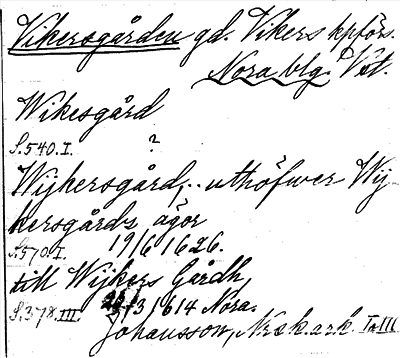 Vikersgården gd. Vikers kpförs.
Nora blg. Vstm.
Wikesgård
S.540.I. ?
Wijkersgård, .. uthöfwer Wij
kersgårdz ägor
S.570.I. 19/6 1626.
till Wijkers Gårdh
S.378.III. /3 1614 Nora.
Johansson, Norsk.ark. I III